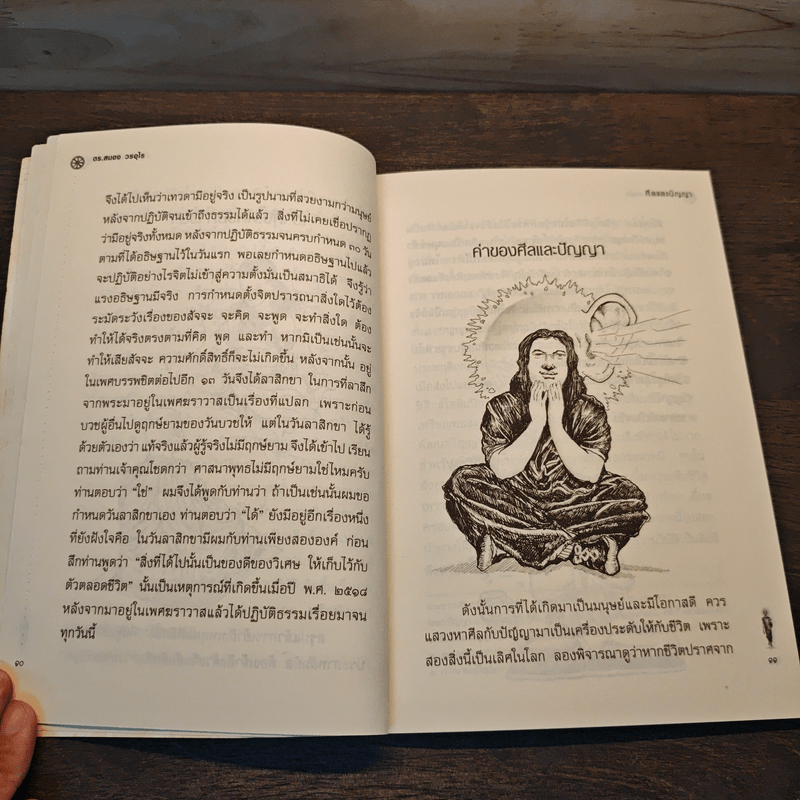 ดร.สนอง วรอุไร
จึงได้ไปเห็นว่าเทวดามีอยู่จริง เป็นรูปนามที่สวยงามกว่ามนุษย์
หลังจากปฏิบัติจนเข้าถึงธรรมได้แล้ว สิ่งที่ไม่เคยเชื่อปรากฏ
ว่ามีอยู่จริงทั้งหมด หลังจากปฏิบัติธรรมจนครบกำหนด ๓๐ วัน
ตามที่ได้อธิษฐานไว้ในวันแรก พอเลยกำหนดอธิษฐานไปแล้ว
จะปฏิบัติอย่างไรจิตไม่เข้าสู่ความตั้งมั่นเป็นสมาธิได้ จึงรู้ว่า
แรงอธิษฐานมีจริง การกำหนดตั้งจิตปรารถนาสิ่งใดไว้ต้อง
ระมัดระวังเรื่องของสัจจะ จะคิด จะพูด จะทำสิ่งใด ต้อง
ทำให้ได้จริงตรงตามที่คิด พูด และทำ หากมิเป็นเช่นนั้นจะ
ทำให้เสียสัจจะ ความศักดิ์สิทธิ์ก็จะไม่เกิดขึ้น หลังจากนั้น อยู่
ในเพศบรรพชิตต่อไปอีก ๑๓ วันจึงได้ลาสิกขา ในการที่ลาสึก
จากพระมาอยู่ในเพศฆราวาสเป็นเรื่องที่แปลก เพราะก่อน
บวชผู้อื่นไปดูฤกษ์ยามของวันบวชให้ แต่ในวันลาสิกขา ได้รู้
ด้วยตัวเองว่า แท้จริงแล้วผู้รู้จริงไม่มีฤกษ์ยาม จึงได้เข้าไป เรียน
ถามท่านเจ้าคุณโชดกว่า ศาสนาพุทธไม่มีฤกษ์ยามใช่ไหมครับ
ท่านตอบว่า “ใช่” ผมจึงได้พูดกับท่านว่า ถ้าเป็นเช่นนั้นผมขอ
กำหนดวันลาสิกขาเอง ท่านตอบว่า “ได้” ยังมีอยู่อีกเรื่องหนึ่ง
ที่ยังฝังใจคือ ในวันลาสิกขามีผมกับท่านเพียงสององค์ ก่อน
สึกท่านพูดว่า “สิ่งที่ได้ไปนั้นเป็นของดีของวิเศษ ให้เก็บไว้กับ
ตัวตลอดชีวิต” นั้นเป็นเหตุการณ์ที่เกิดขึ้นเมื่อปี พ.ศ. ๒๕๑๘
หลังจากมาอยู่ในเพศฆราวาสแล้วได้ปฏิบัติธรรมเรื่อยมาจน
ทุกวันนี้
๑๐
ค่าของศีลและปัญญา
ดังนั้นการที่ได้เกิดมาเป็นมนุษย์และมีโอกาสดี ควร
แสวงหาศีลกับปัญญามาเป็นเครื่องประดับให้กับชีวิต เพราะ
สองสิ่งนี้เป็นเลิศในโลก ลองพิจารณาดูว่าหากชีวิตปราศจาก
๑๑